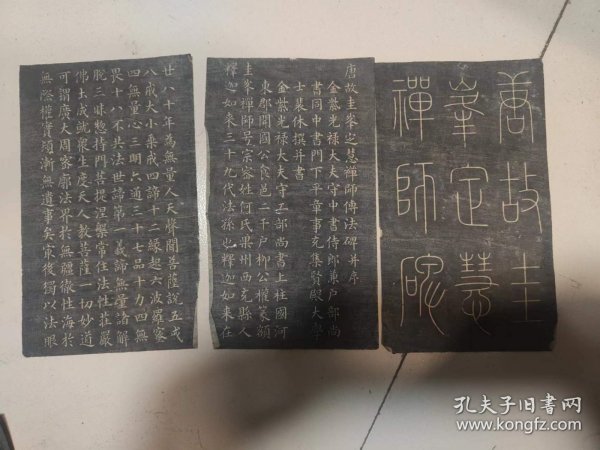 唐故圭
峯定慧
禪師碑
唐故圭峯定慧禪師傳法碑并序
金紫光禄大夫守中書侍郎兼户部尚
書同中書門下平章事充集賢殿大學
士裴休撰并書
金紫光禄大夫守工部尚書上柱國河
東郡開國公食邑二千户柳公權篆額
圭峯禪師号宗密姓何氏果州西充縣人
釋迦如来三十九代法孫也釋迦如来在
世八十年為無量人天聲聞菩薩說五戒
八戒大小乘戒四諦十二緣起六波羅蜜
四無量心三明六通三十七品十力四無
畏十八不共法世諦第一義諦無量諸解
脫三昧惣持門菩提涅槃常住法性莊嚴
佛土成就衆生度天人教菩薩一切妙道
可謂廣大周密廓法界於無疆徹性海於
無際權實頓漸無遺事矣㝡後獨以法眼
孔夫子旧书网
www.kongfz.com